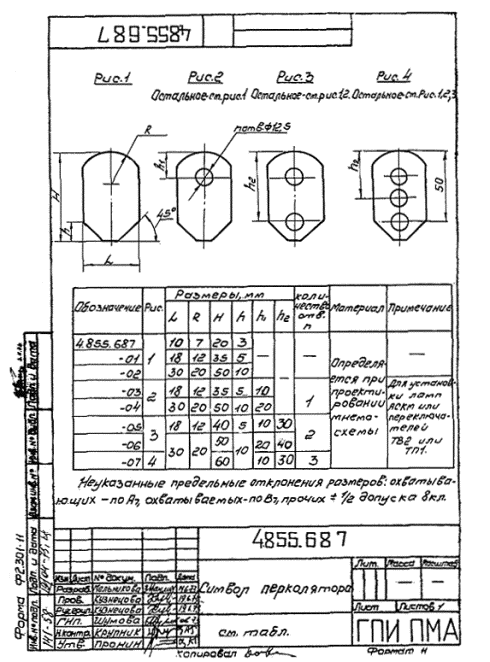 4.855.687
Рис.1 Рис.2 Рис.3 Рис.4
Остальное-см.рис.1 Остальное-см.рис.1,2. Остальное-см.Рис.1,2,3
R
n отв.Ф12,5
h1
h2
h2
50
H
h
45°
L
Обозначение Рис. Размеры, мм Количество отв. n Материал Примечание
L R H h h1 h2
4.855.687 1 10 7 20 3 — — — Определяется при проектировании мнемосхемы —
-01 18 12 35 5
-02 30 20 50 10
-03 2 18 12 35 5 10 1 Для установки ламп ЛСКМ или переключателей ТВ2 или ТП1.
-04 30 20 50 10 20
-05 3 18 12 40 5 10 30 2
-06 30 20 50 10 20 40
-07 4 60 10 30 3
Неуказанные предельные отклонения размеров: охватыва-
ющих - по А7, охватываемых - по В7, прочих ± 1/2 допуска 8кл.
4.855.687
Символ перколятора
Лит. Масса Масштаб
— —
Лист Листов 1
см. табл.
ГПИ ПМА
Изм Лист № докум. Подп. Дата
Разраб.
Пров. Кузнецова
Рук.групп Кузнецова
ГИП Шумова
Н.контр. Крупник
Утв. Пронин
Копировал
Формат
Форма Ф2.301-11
Инв.№ подл. Подп. и дата Взам.инв.№ Инв.№ дубл. Подп. и дата